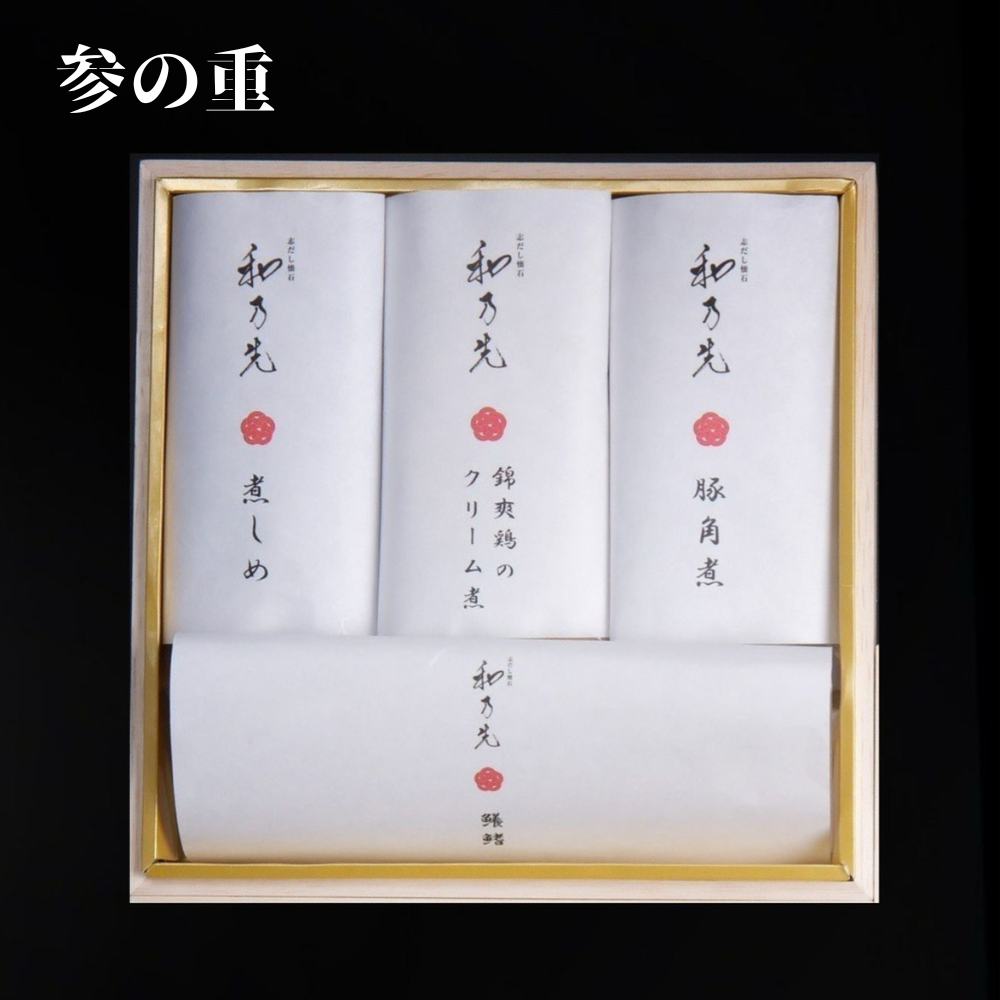 参の重
志だし懐石
和乃先
煮しめ
志だし懐石
和乃先
錦爽鶏の
クリーム煮
志だし懐石
和乃先
豚角煮
志だし懐石
和乃先